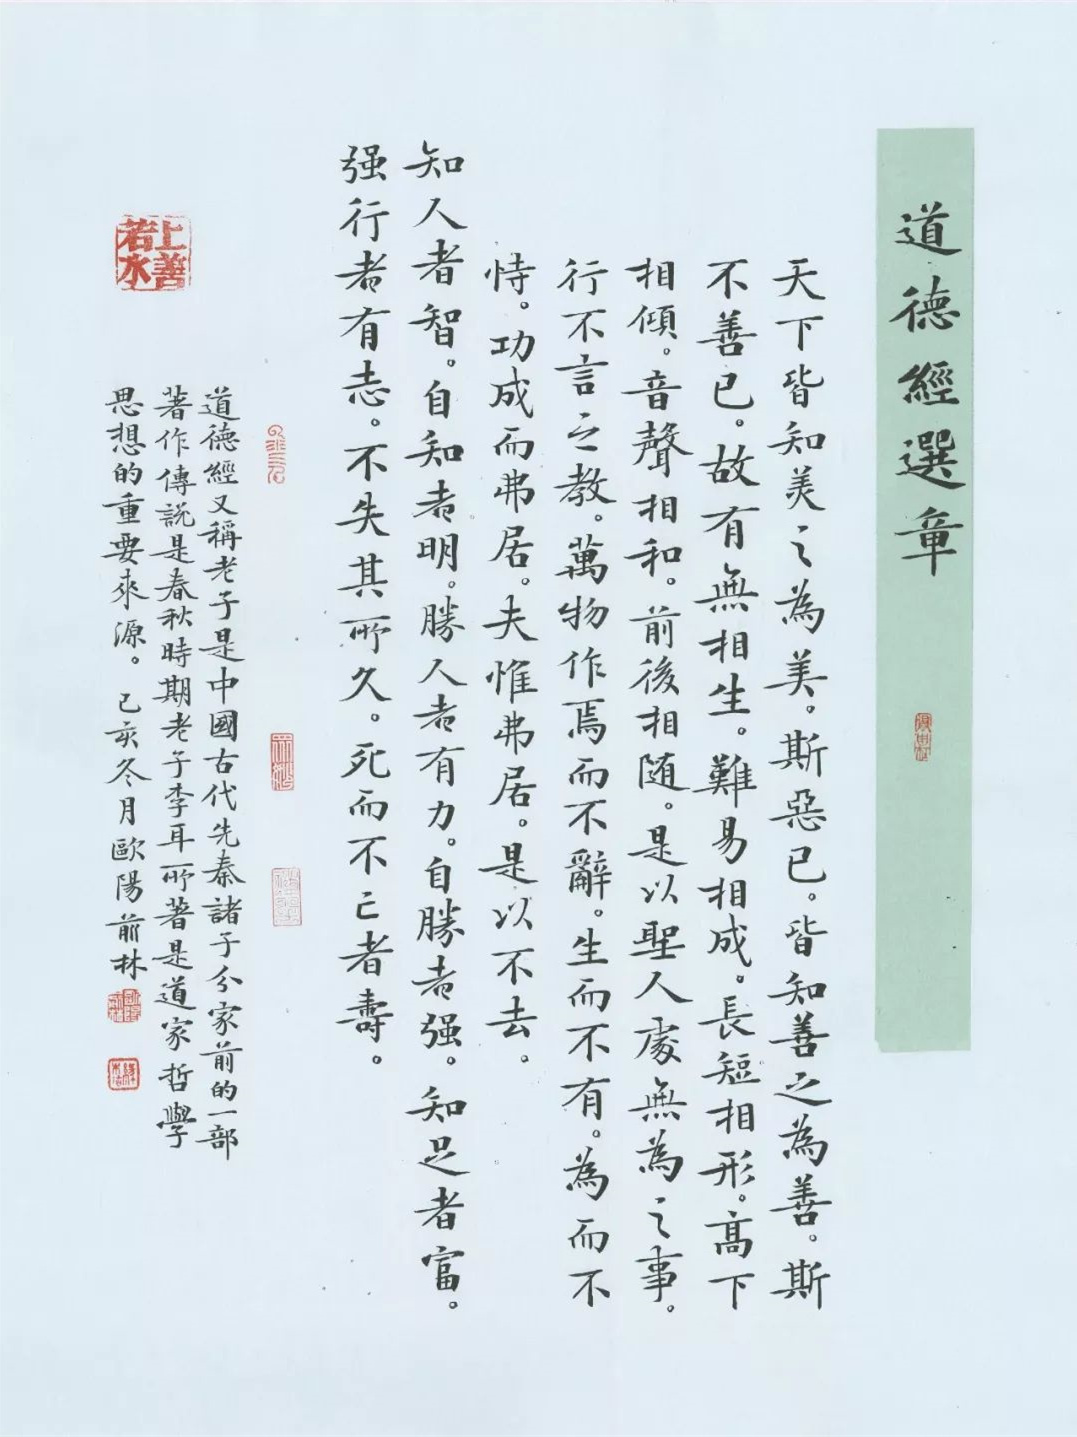 道德經選章
天下皆知美之為美。斯惡已。皆知善之為善。斯
不善已。故有無相生。難易相成。長短相形。高下
相傾。音聲相和。前後相随。是以聖人處無為之事。
行不言之教。萬物作焉而不辭。生而不有。為而不
恃。功成而弗居。夫惟弗居。是以不去。
知人者智。自知者明。勝人者有力。自勝者强。知足者富。
强行者有志。不失其所久。死而不亡者壽。
道德經又稱老子是中國古代先秦諸子分家前的一部
著作傳説是春秋時期老子李耳所著是道家哲學
思想的重要來源。己亥冬月歐陽前林
上善若水